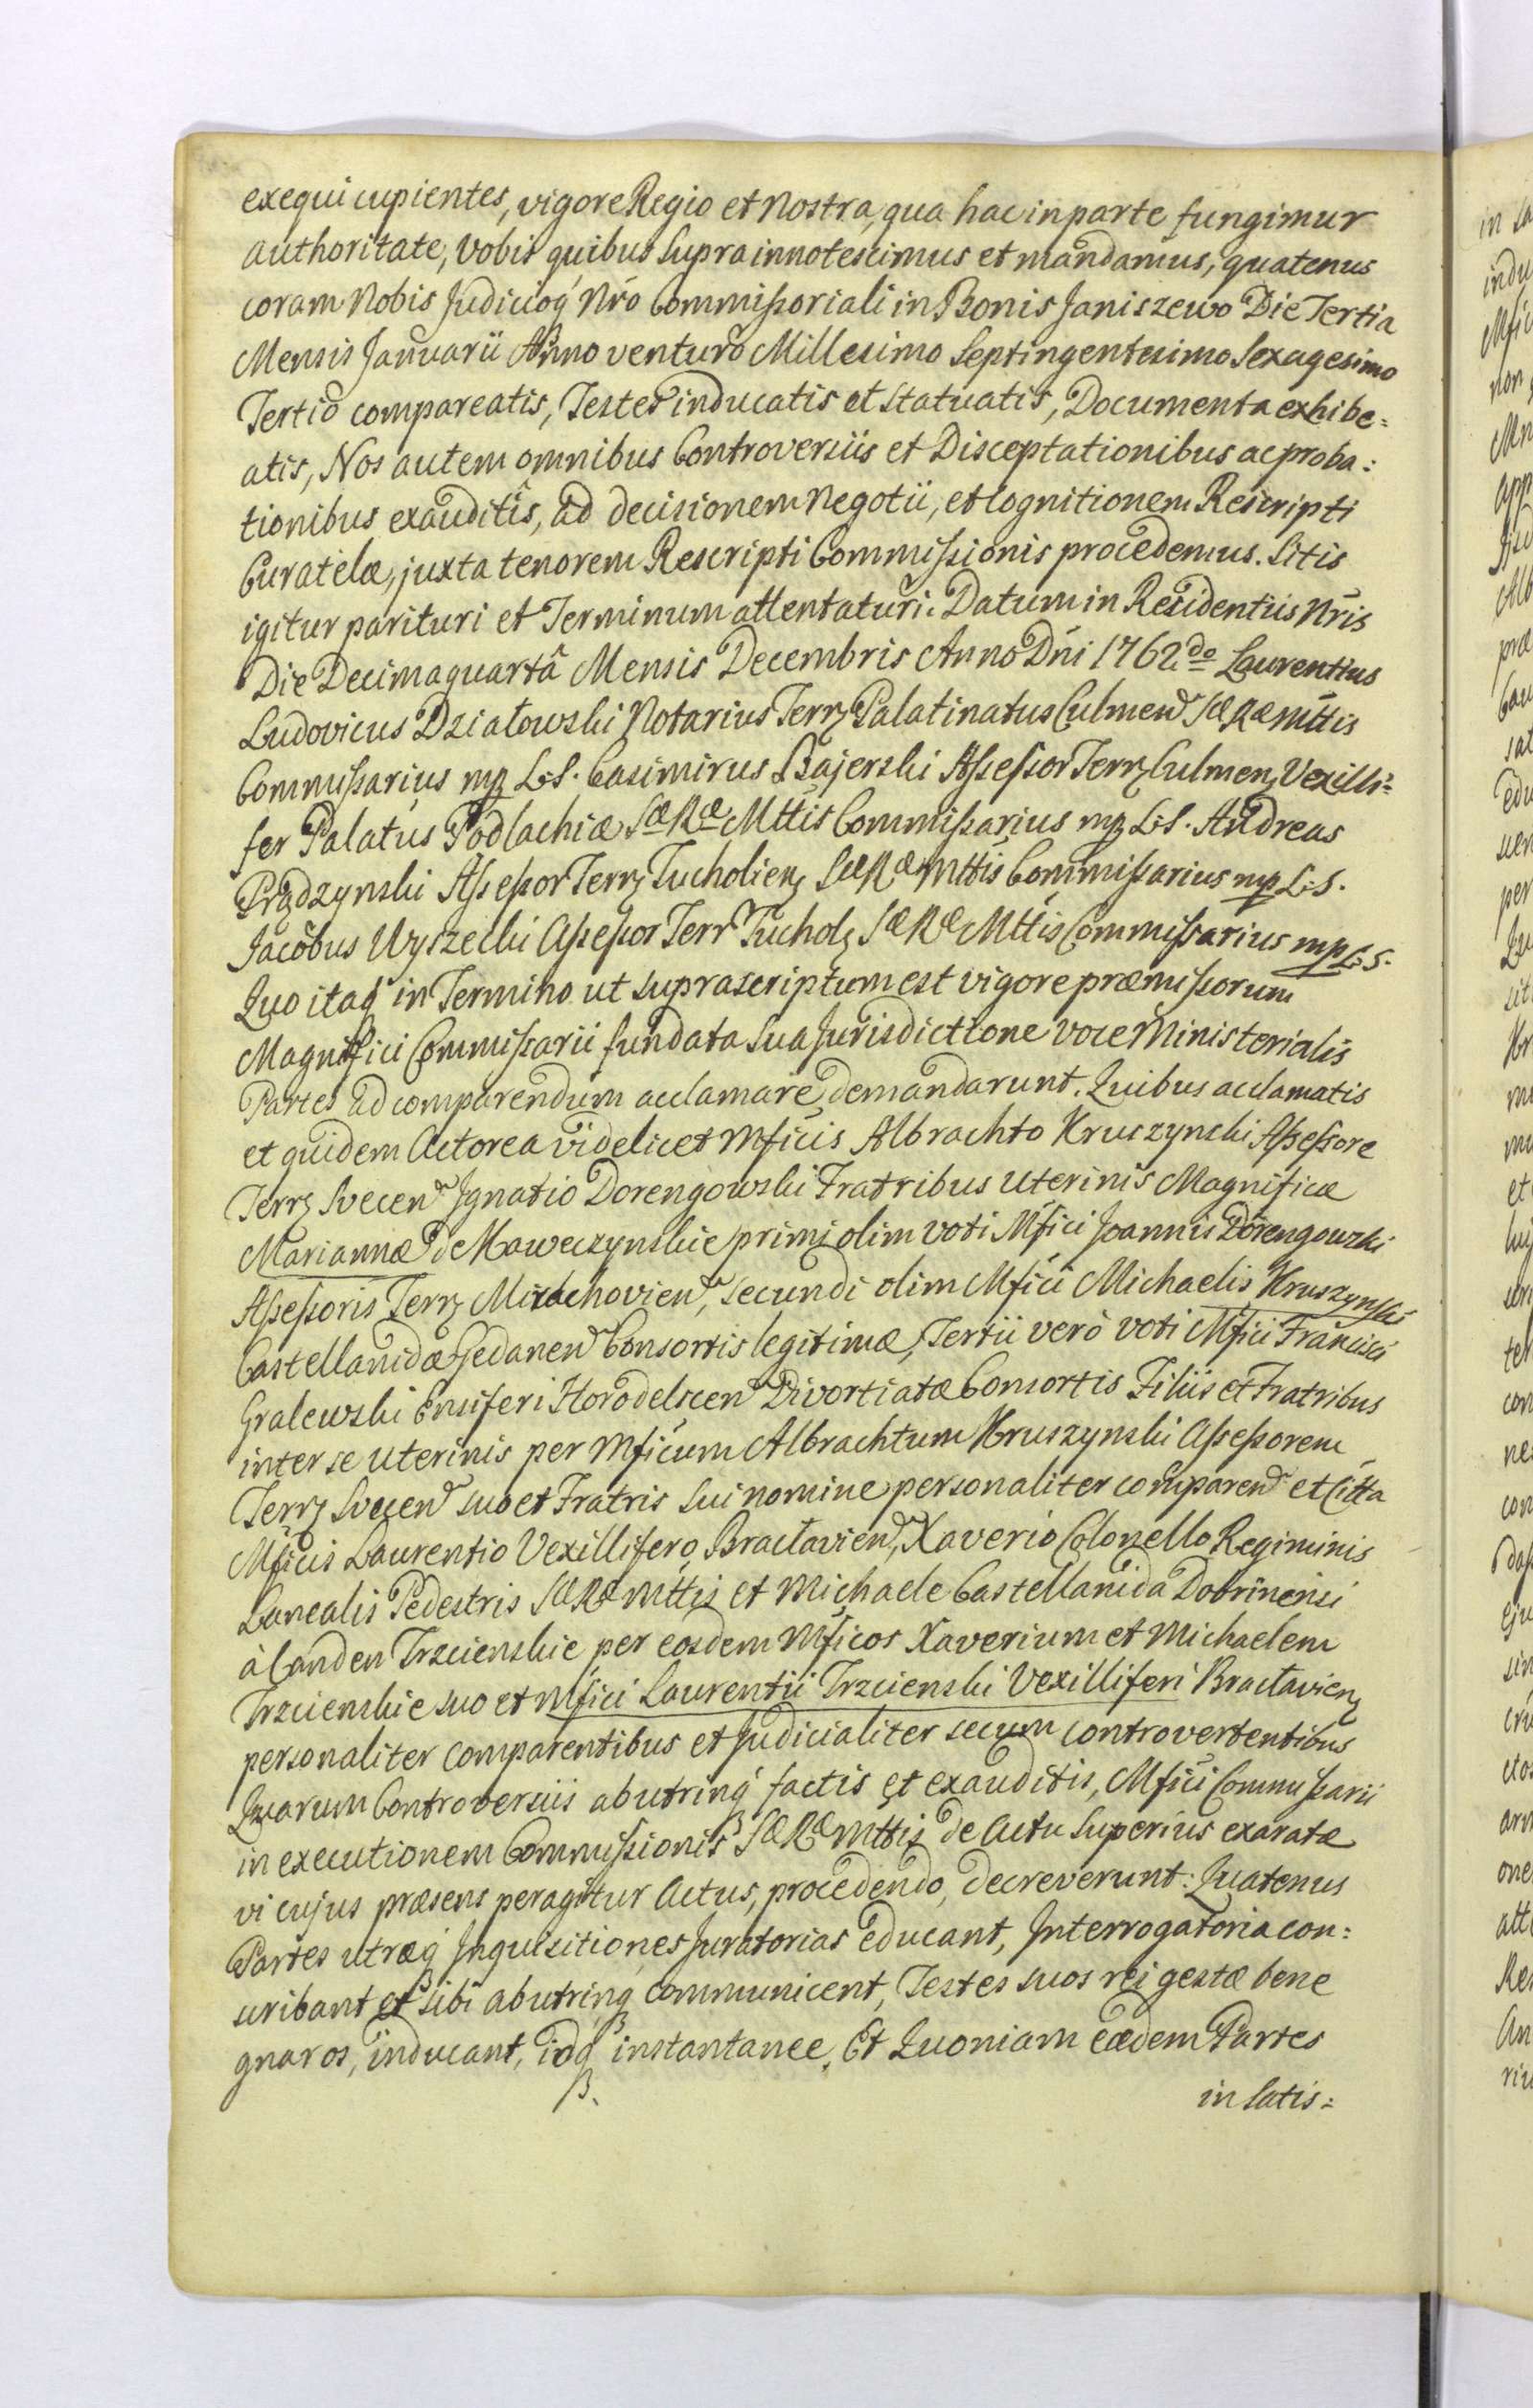 exequi cupientes, vigore Regio et Nostra, qua hac in parte fungimur
authoritate, vobis quibus supra innotescimus et mandamus, quatenus
coram Nobis Judicioq́ Nro Commissoriali in Bonis Janiszewo Die Tertia
Mensis Januarii Anno venturo Millesimo Septingentesimo Sexagesimo
Tertio compareatis, Testes inducatis et statuatis, Documenta exhibe=
atis, Nos autem omnibus Controversiis et Disceptationibus ac proba:
tionibus exauditis, ad decisionem Negotii, et Cognitionem Rescripti
Curatelæ, juxta tenorem Rescripti Commissionis procedemus. Sitis
igitur parituri et Terminum attentaturi. Datum in Residentiis Nris
Die Decima quartâ Mensis Decembris Anno Dni 1762do Laurentius
Ludovicus Działowski Notarius Terrz Palatinatus Culmen SæRæMttis
Commissarius mp L:S. Casimirus Bajerski Assessor Terrz Culmenz Vexilli=
fer Palatus Podlachiæ SæRæMttis Commissarius mp L:S. Andreas
Prądzynski Assessor Terrz Tucholienz SæRæMttis Commissarius mp L:S.
Jacobus Wyszecki Assessor Terr Tucholz SæRæMttis Commissarius mp L:S.
Quo itaq́ in Termino ut suprascriptum est vigore præmissorum
Magnifici Commissarii fundata sua Jurisdictione voce Ministerialis
Partes ad comparendum acclamare demandarunt. Quibus acclamatis
et quidem Actorea videlicet Mficis Albrachto Kruszynski Assessore
Terrz Svecen Ignatio Dorengowski Fratribus Uterinis Magnificæ
Mariannæ de Mowczynskie primi olim voti Mfici Joannis Dorengowski
Assessoris Terrz Mirachovien, secundi olim Mfici Michaelis Kruszynski
Castellanidæ Gedanen Consortis legitimæ, Tertii verò voti Mfici Francisci
Gralewski Ensiferi Horodelscen Divortiatæ Consortis Filiis et Fratribus
inter se Uterinis per Mficum Albrachtum Kruszynski Assessorem
Terrz Svecen suo et Fratris sui nomine personaliter comparen et Citta
Mficis Laurentio Vexillifero Braclavien, Xaverio Colonello Regiminis
Lanealis Pedestris SæRæMttis et Michaele Castellanida Dobrinensi
à Landen Trzcienskie per eosdem Mficos Xaverium et Michaelem
Trzcienskie suo et Mfici Laurentii Trzcienski Vexilliferi Braclavienz
personaliter comparentibus et Judicialiter secum controvertentibus
Quarum Controversiis ab utrinq́ factis et exauditis, Mfici Commissarii
in executionem Commissionis SæRæMttis de Actu superius exaratæ
vi cujus præsens peragitur Actus, procedendo, decreverunt: Quatenus
Partes utræq́ Inquisitiones Juratorias educant, Interrogatoria con:
scribant et sibi ab utrinq communicent, Testes suos rei gestæ bene
gnaros, inducant, idq instantanee. Et Quoniam eædem Partes
in satis=